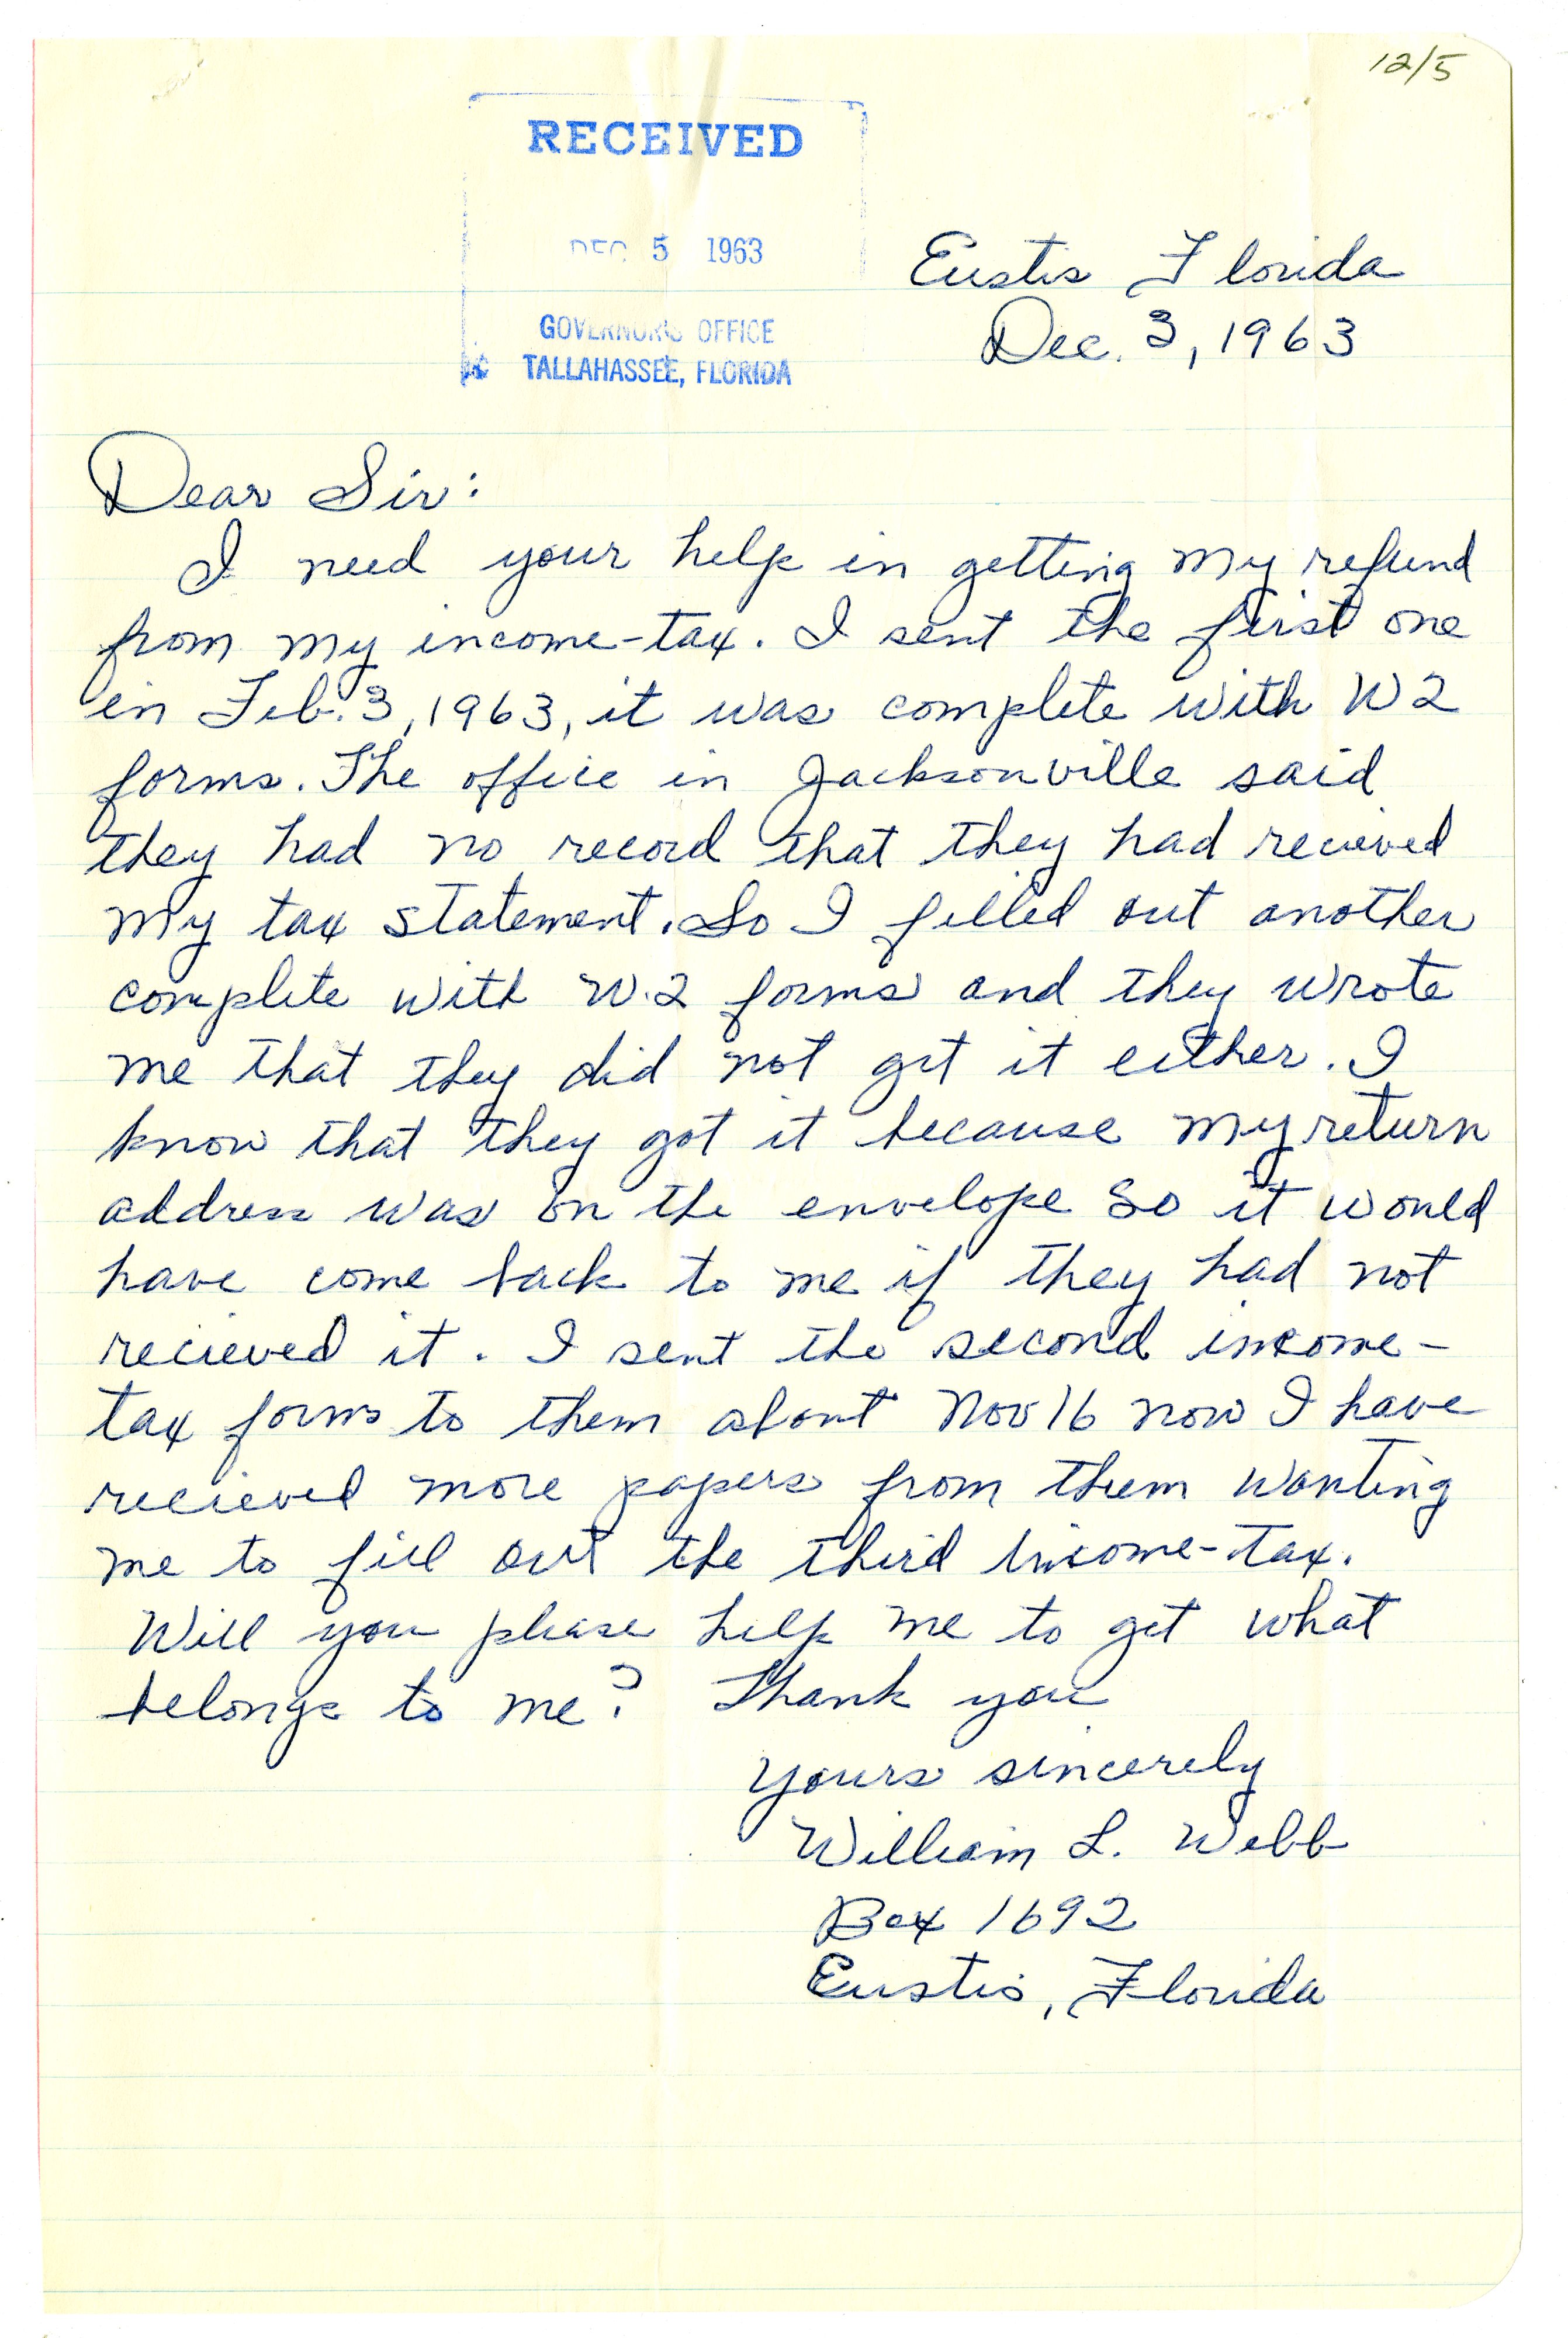 12/5
RECEIVED
DEC 5 1963
GOVERNOR'S OFFICE
TALLAHASSEE, FLORIDA
Eustis Florida
Dec. 3, 1963
Dear Sir:
I need your help in getting my refund
from my income-tax. I sent the first one
in Feb. 3, 1963, it was complete with W2
forms. The office in Jacksonville said
they had no record that they had recieved
my tax statement. So I filled out another
complete with W.2 forms and they wrote
me that they did not get it either. I
know that they got it because my return
address was on the envelope so it would
have come back to me if they had not
recieved it. I sent the second income-
tax forms to them about Nov 16 now I have
recieved more papers from them wanting
me to fill out the third income-tax.
Will you please help me to get what
belongs to me? Thank you
Yours sincerely
William L. Webb
Box 1692
Eustis, Florida